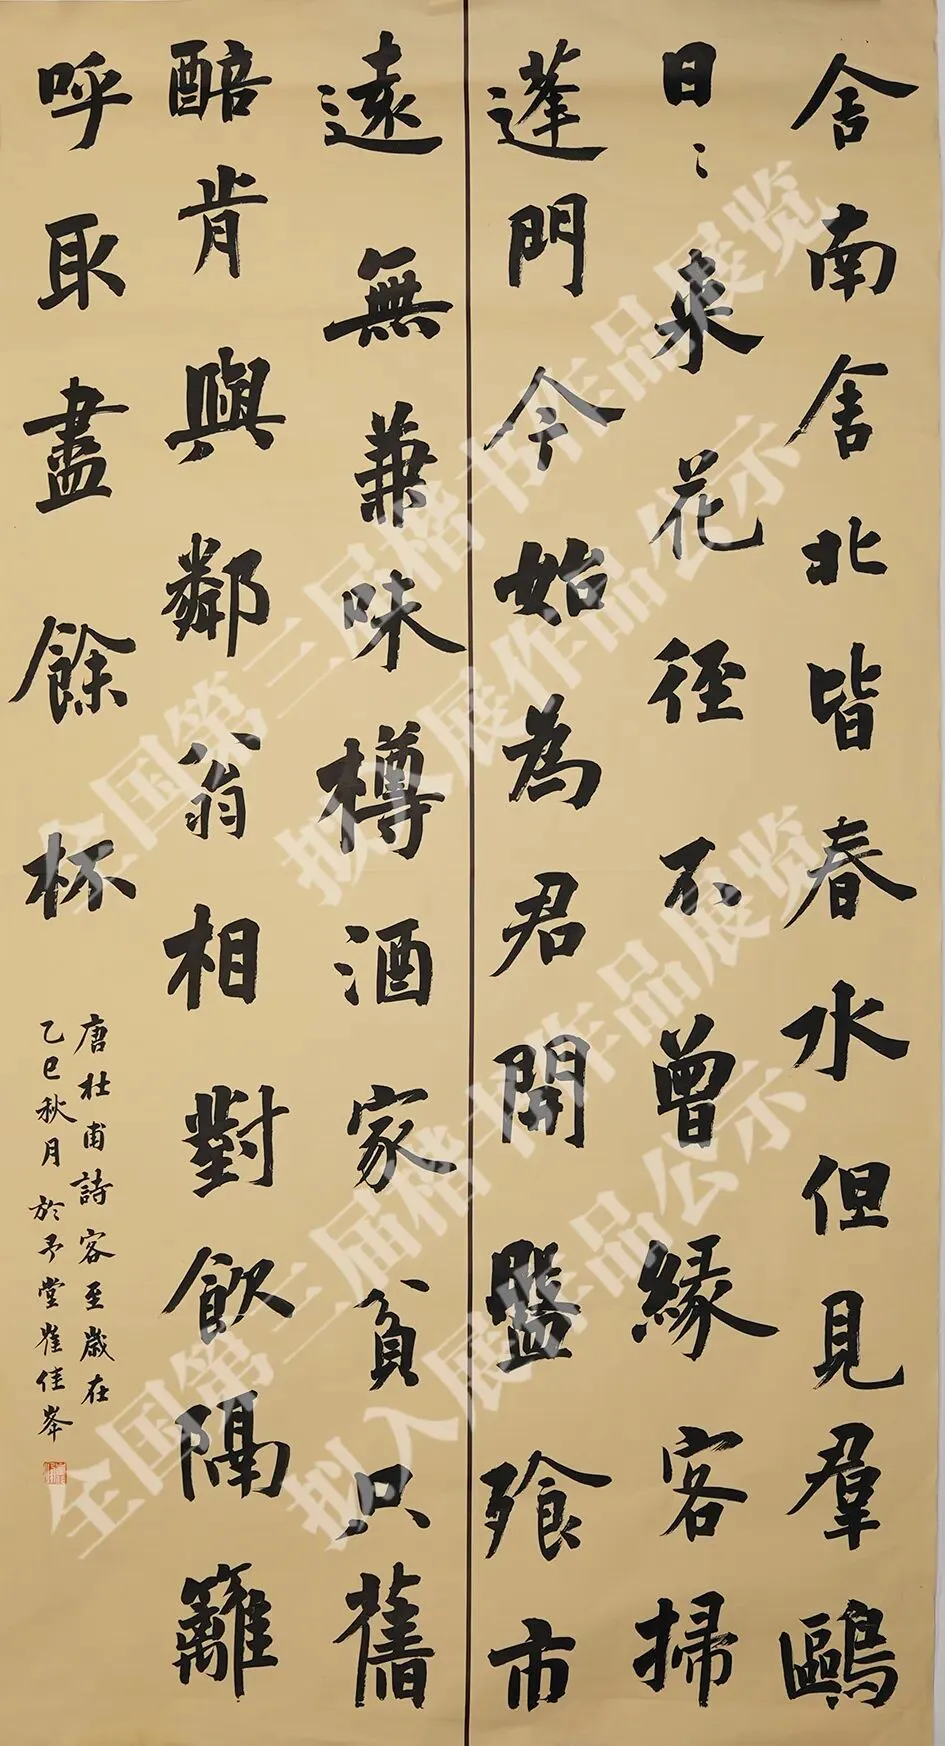 舍南舍北皆春水但見羣鷗
日〻來花徑不曾緣客掃
蓬門今始為君開盤飧市
遠無兼味樽酒家貧只舊
醅肯與鄰翁相對飲隔籬
呼取盡餘杯
唐杜甫詩客至歲在
乙巳秋月於予堂崔佳峯
全国第三届楷书作品展览
拟入展作品公示
全国第三届楷书作品展览
拟入展作品公示